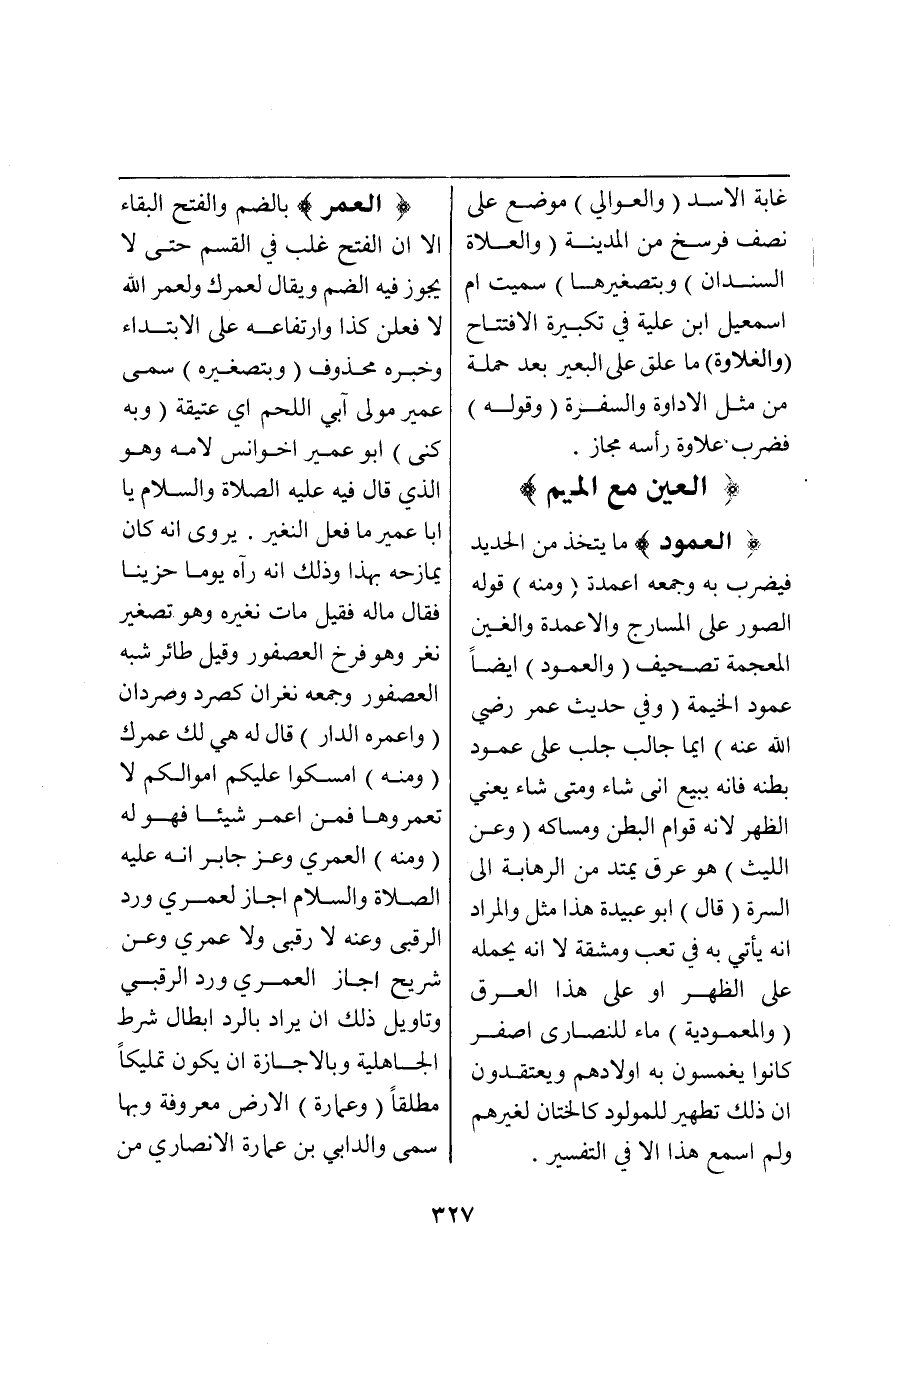 غابة الاسد ( والعوالي ) موضع على
نصف فرسخ من المدينة ( والعلاة
السندان ) وبتصغيرها ) سميت ام
اسمعيل ابن علية في تكبيرة الافتتاح
(والغلاوة) ما علق على البعير بعد حملة
من مثل الاداوة والسفرة ( وقوله )
فضرب علاوة رأسه مجاز .
﴿ العين مع الميم ﴾
﴿ العمود ﴾ ما يتخذ من الحديد
فيضرب به وجمعه اعمدة ( ومنه ) قوله
الصور على المسارج والاعمدة والغين
المعجمة تصحيف ( والعمود ) ايضاً
عمود الخيمة ( وفي حديث عمر رضي
الله عنه ) ايما جالب جلب على عمود
بطنه فانه يبيع انى شاء ومتى شاء يعني
الظهر لانه قوام البطن ومساكه ( وعن
الليث ) هو عرق يمتد من الرهابة الى
السرة ( قال ) ابو عبيدة هذا مثل والمراد
انه يأتي به في تعب ومشقة لا انه يحمله
على الظهر او على هذا العرق
( والمعمودية ) ماء للنصارى اصفر
كانوا يغمسون به اولادهم ويعتقدون
ان ذلك تطهير للمولود كالختان لغيرهم
ولم اسمع هذا الا في التفسير .
﴿ العمر ﴾ بالضم والفتح البقاء
الا ان الفتح غلب في القسم حتى لا
يجوز فيه الضم ويقال لعمرك ولعمر الله
لا فعلن كذا وارتفاعه على الابتداء
وخبره محذوف ( وبتصغيره ) سمى
عمير مولى آبي اللحم اي عتيقة ( وبه
كنى ) ابو عمير اخوانس لامه وهو
الذي قال فيه عليه الصلاة والسلام يا
ابا عمير ما فعل النغير . يروى انه كان
يمازحه بهذا وذلك انه رآه يوما حزينا
فقال ماله فقيل مات نغيره وهو تصغير
نغر وهو فرخ العصفور وقيل طائر شبه
العصفور وجمعه نغران كصرد وصردان
( واعمره الدار ) قال له هي لك عمرك
( ومنه ) امسكوا عليكم اموالكم لا
تعمروها فمن اعمر شيئا فهو له
( ومنه ) العمري وعز جابر انه عليه
الصلاة والسلام اجاز لعمري ورد
الرقبى وعنه لا رقبى ولا عمري وعن
شريح اجاز العمري ورد الرقبي
وتاويل ذلك ان يراد بالرد ابطال شرط
الجاهلية وبالاجازة ان يكون تمليكاً
مطلقاً ( وعمارة ) الارض معروفة وبها
سمى والدابي بن عمارة الانصاري من
٣٢٧